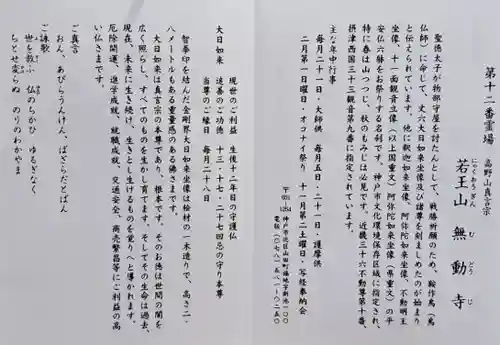 第十二番霊場
高野山真言宗
若王山 無動寺
にゃくおうざん むどうじ
聖徳太子が物部守屋を討たんとして、戦勝祈願のため、鞍作鳥(鳥
仏師)に命じて、丈六大日如来坐像及び諸尊を刻ましめたのが始まり
と伝えられています。他に釈迦如来坐像、阿弥陀如来坐像、不動明王
坐像、十一面観音立像(以上国重文)阿弥陀如来坐像(県重文)の平
安仏六躰をお祭りする名刹です。神戸市文化環境保存区域に指定され、
特に春は山つつじ、秋のもみじは必見です。近畿三十六不動尊第十番、
摂津西国三十三観音第九番に指定されています。
主な年中行事
毎月二十一日・大師供 毎月五日・二十一日・護摩供
二月第一日曜日・オコナイ祭り 十一月第二土曜日・写経奉納会
〒651-1254 神戸市北区山田町福地字新池一〇〇
電話(〇七八)五八一-〇二五〇
大日如来 現世のご利益 生後十二年目の守護仏
追善のご功徳 十三・十七・二十七回忌の守り本尊
当尊のご縁日 毎月二十八日
智拳印を結んだ金剛界大日如来坐像は桧材の一木造りで、高さ二・
八メートルもある重量感のある佛さまです。
大日如来は真言宗の本尊であり、根本です。そのお徳は世間の闇を
広く照らし、すべてのものを生かし育てます。そしてその生命は過去、
現在、未来に生き続け、生きとし生けるものを覚りへと導かれます。
厄除開運、進学成就、就職成就、交通安全、商売繁昌等にご利益の高
い仏さまです。
ご真言
おん、あびらうんけん、ばざらだとばん
ご詠歌
世を救ふ 仏のちかひ ゆるぎなく
ちとせ変らぬ のりのわかやま